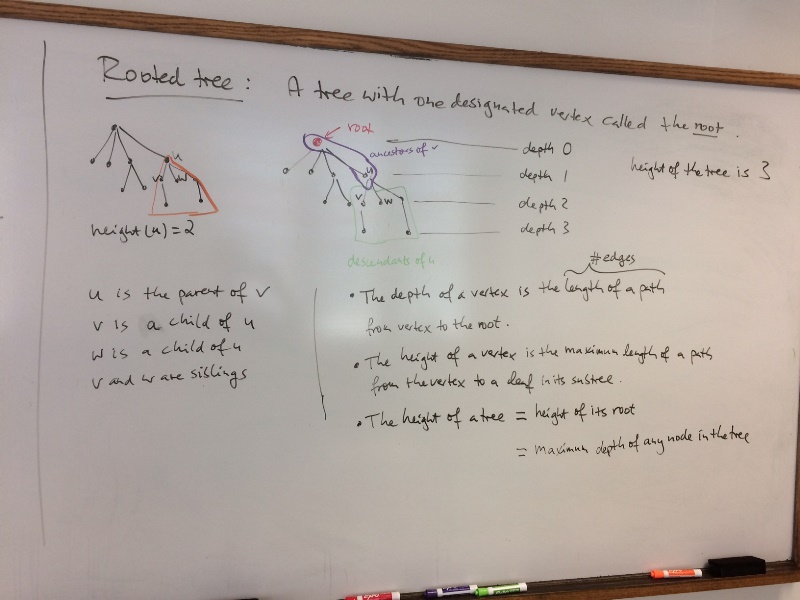 Rooted tree : A tree with one designated vertex called the root .
root
ancestors of v
depth 0
depth 1
depth 2
depth 3
height of the tree is 3
u
v
w
height (u) = 2
u
v
w
descendants of u
u is the parent of v
v is a child of u
w is a child of u
v and w are siblings
# edges
• The depth of a vertex is the length of a path
from vertex to the root .
• The height of a vertex is the maximum length of a path
from the vertex to a leaf in its subtree .
• The height of a tree = height of its root
= maximum depth of any node in the tree